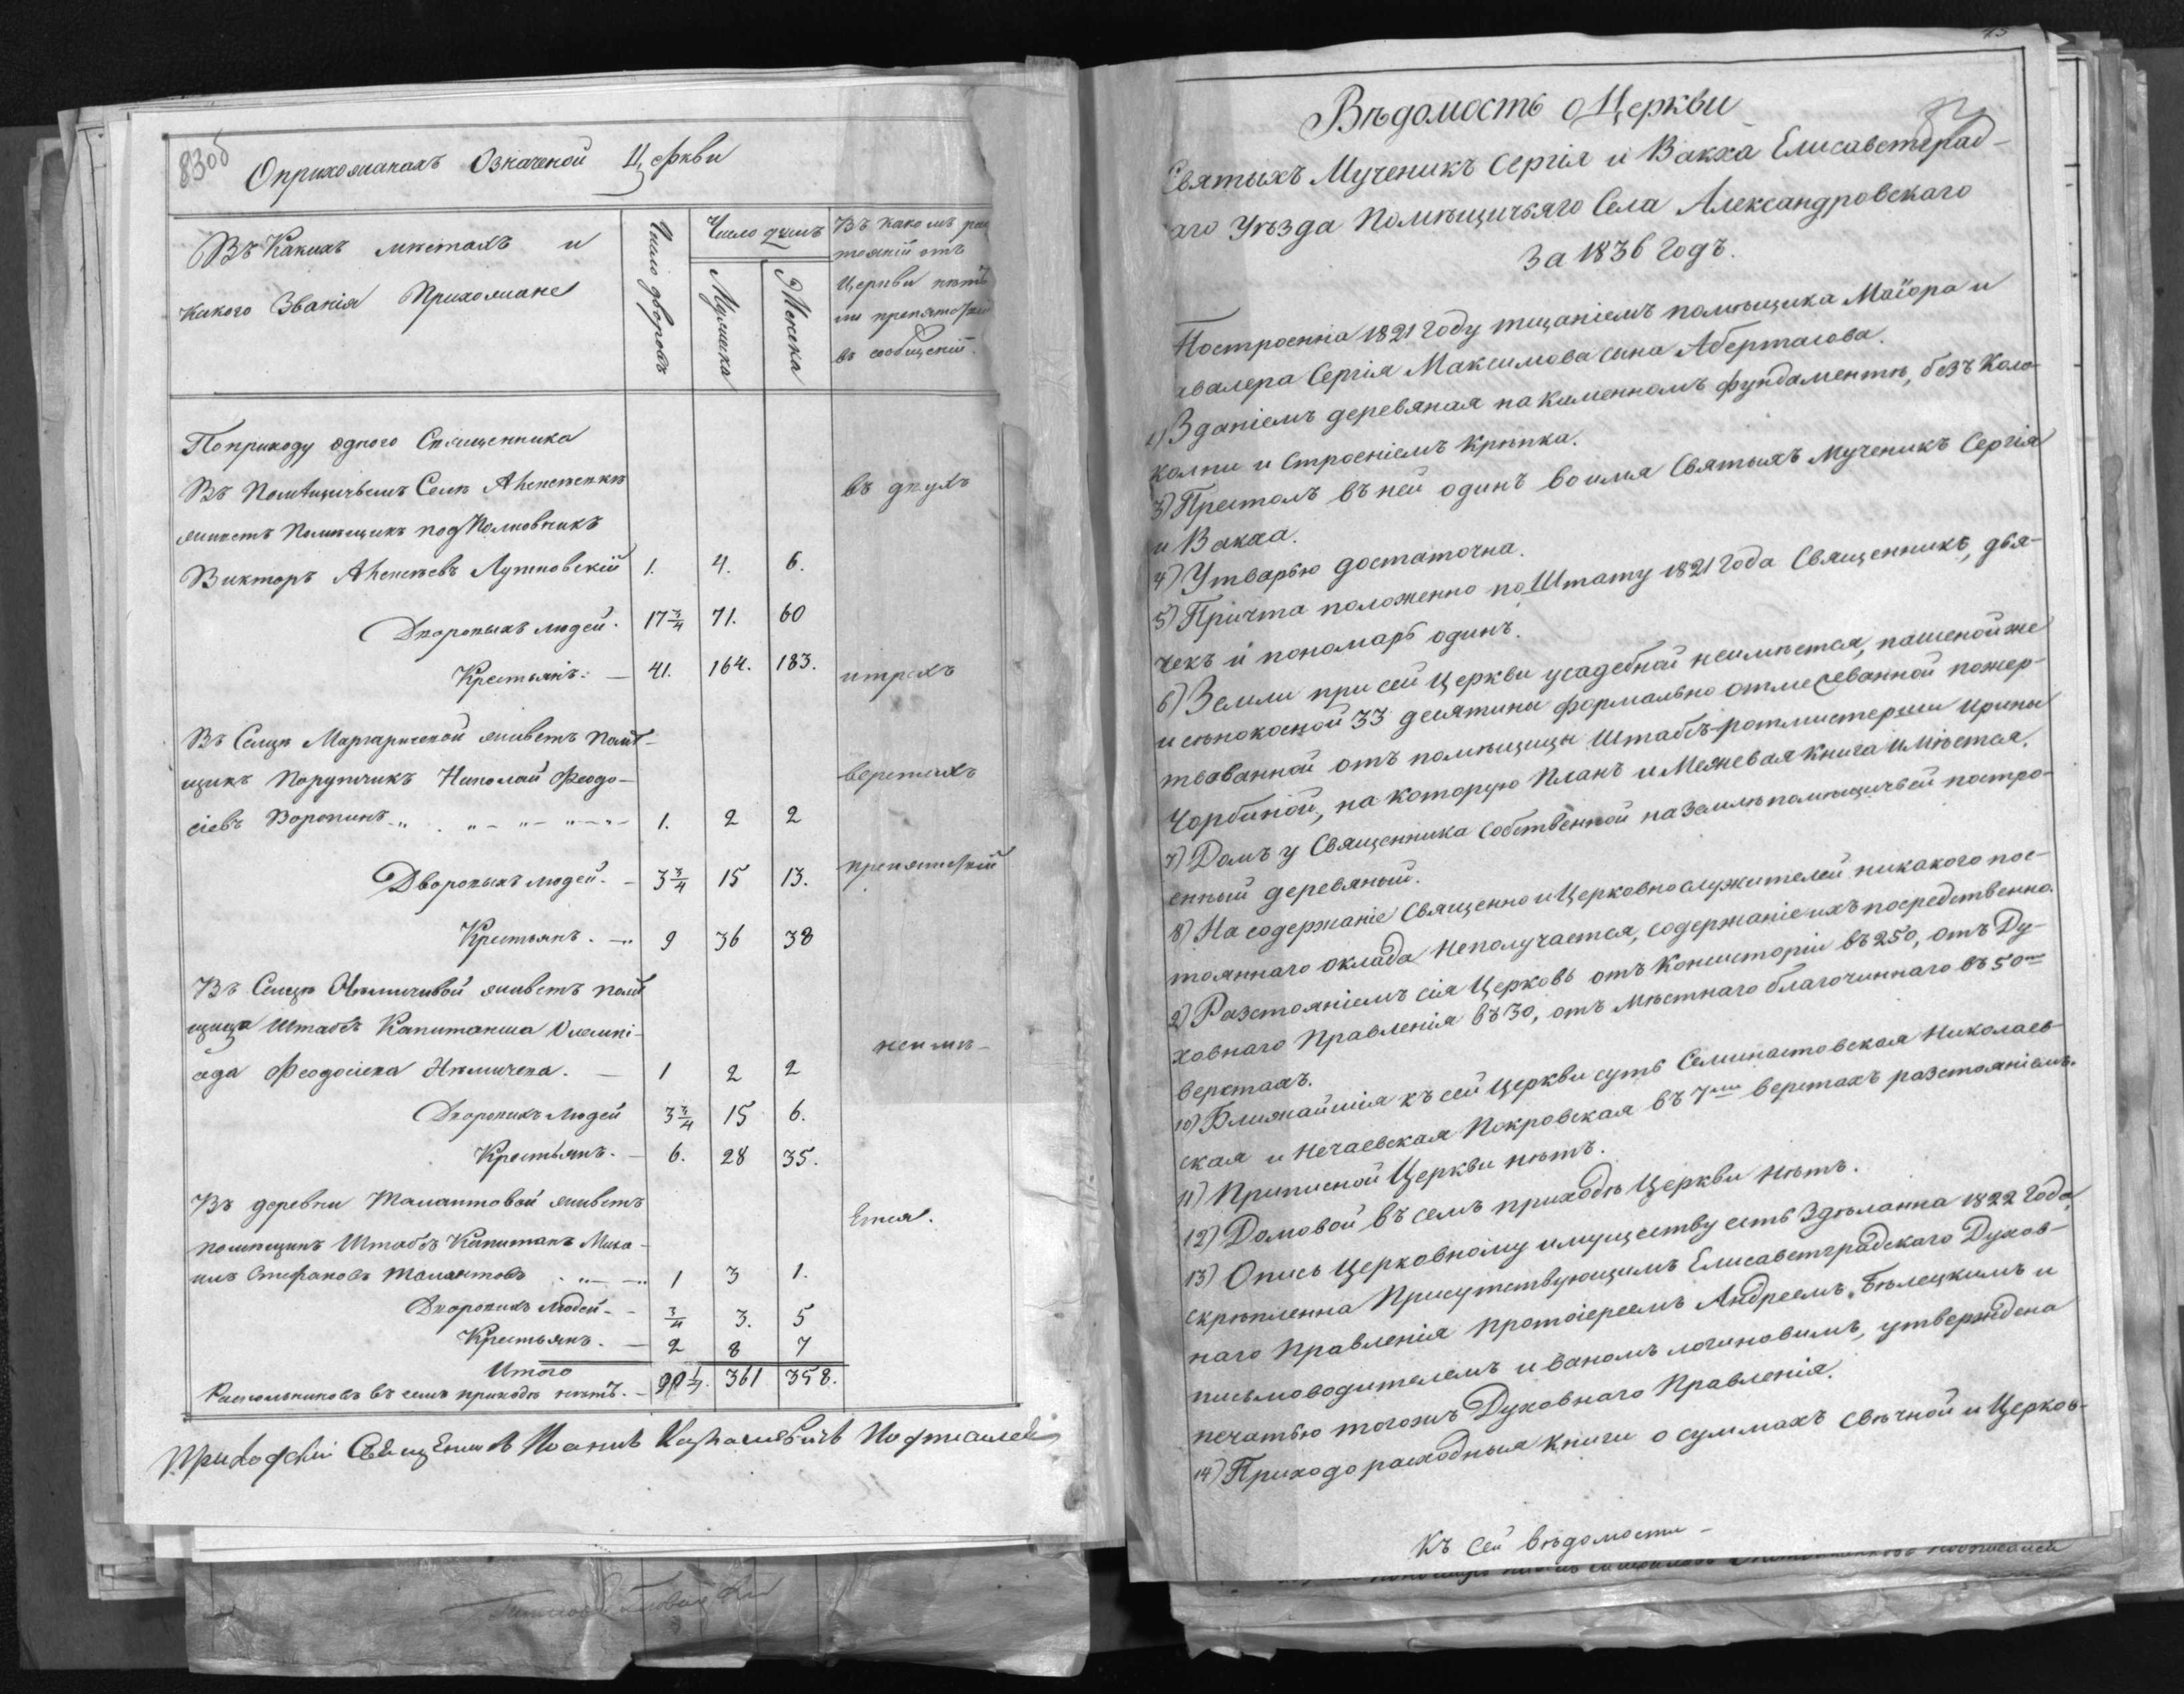 83об
О прихожанахъ Означеной Церкви
Въ Какихъ мѣстахъ и
какого Званія Прихожане
Число дворовъ
Число душъ
Мужеска
Женска
Въ какомъ раз
тояніи отъ
Церкви нѣтъ
ли препятствій
въ сообщеніи.
По приходу одного Священника
Въ Помѣщичьемъ Селѣ
въ двухъ
живетъ Помѣщикъ подПолковникъ
Викторъ 1. 4. 6.
Дворовыхъ людей. 17 3/4 71. 60
Крестьянъ. — 41. 164. 183.
итрехъ
Въ Сельцѣ живетъ помѣ-
щикъ Порутчикъ Николай Феодо-
верстахъ
сіевъ Воронинъ 1. 2 2
Дворовыхъ людей. — 3 3/4 15 13.
препятствій
Крестьянъ. — 9 36 38
Въ Сельцѣ живетъ помѣ
щица Штабсъ Капитанша Олимпі-
неимѣ-
ада Феодосіева Нѣмичева. — 1 2 2
Дворовыхъ людей 3 3/4 15 6.
Крестьянъ. — 6. 28 35.
Въ деревни Малаштовой живетъ
ется.
помѣщикъ Штабсъ Капитанъ Миха-
илъ Стефановъ 1 3 1.
Дворовыхъ людей — 3/4 3. 5
Крестьянъ. — 2 8 7
Итого
Раскольниковъ въ семъ приходѣ нѣтъ. — 361 358.
Приходскій Священникъ Иоаннъ Подписался
Вѣдомость о Церкви
Святыхъ Мученикъ Сергія и Вакха Елисаветград-
аго Уѣзда Помѣщичьяго Села Александровскаго
За 1836 Годъ.
Построенна 1821 Году тщаніемъ помѣщика Маіора и
авалера Сергія Максимова сына
2) Зданіемъ деревяная на каменномъ фундаментѣ, безъ Коло-
кольни и строеніемъ крѣпка.
3) Престолъ въ ней одинъ во имя Святыхъ Мученикъ Сергія
и Вакха.
4) Утварью достаточна.
5) Причта положенно по Штату 1821 Года Священникъ, дья-
чекъ и пономарь одинъ.
6) Земли при сей церкви усадебной неимѣется, пашеной же
и сѣнокосной 33 десятины формально отмежеванной пожер-
твованной отъ помѣщицы Штабсъ-ротмистерши Ирины
Чорбиной, на которую Планъ и Межевая книга имѣется.
7) Домъ у Священника собственной на Землѣ помѣщичьей постро-
енный деревяный.
8) На содержаніе Священно и Церковнослужителей никакого пос-
тояннаго оклада неполучается, содержаніе ихъ посредственно.
9) Разстояніемъ сія Церковь отъ Консисторіи въ 250, отъ Ду-
ховнаго Правленія въ 30, отъ мѣстнаго благочиннаго въ 50
верстахъ.
10) Ближайшія къ сей Церкви суть Семинастовская Николаев-
ская и Нечаевская Покровская въ 7ми верстахъ разстояніемъ.
11) Приписной Церкви нѣтъ.
12) Домовой въ семъ приходѣ Церкви нѣтъ.
13) Опись церковному имуществу есть Здѣланна 1822 Года,
скрѣпленна Присутствующимъ Елисаветградскаго Духов-
наго Правленія протоіереемъ Андреемъ Бѣлецкимъ и
письмоводителемъ Иваномъ Логиновимъ, утверждена
печатью тогожъ Духовнаго Правленія.
14) Приходо расходныя книги о суммахъ свѣчной и Церков-
Къ Сей вѣдомости —